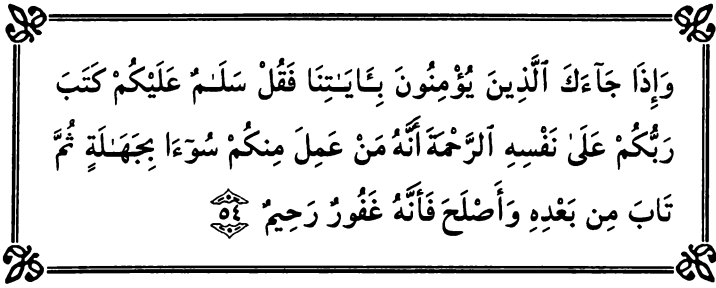 وَإِذَا جَآءَكَ ٱلَّذِينَ يُؤْمِنُونَ بِـَٔايَـٰتِنَا فَقُلْ سَلَـٰمٌ عَلَيْكُمْ كَتَبَ
رَبُّكُمْ عَلَىٰ نَفْسِهِ ٱلرَّحْمَةَ أَنَّهُ مَنْ عَمِلَ مِنكُمْ سُوٓءَا بِجَهَـٰلَةٍ ثُمَّ
تَابَ مِن بَعْدِهِ وَأَصْلَحَ فَأَنَّهُ غَفُورٌ رَحِيمٌ ٥٤